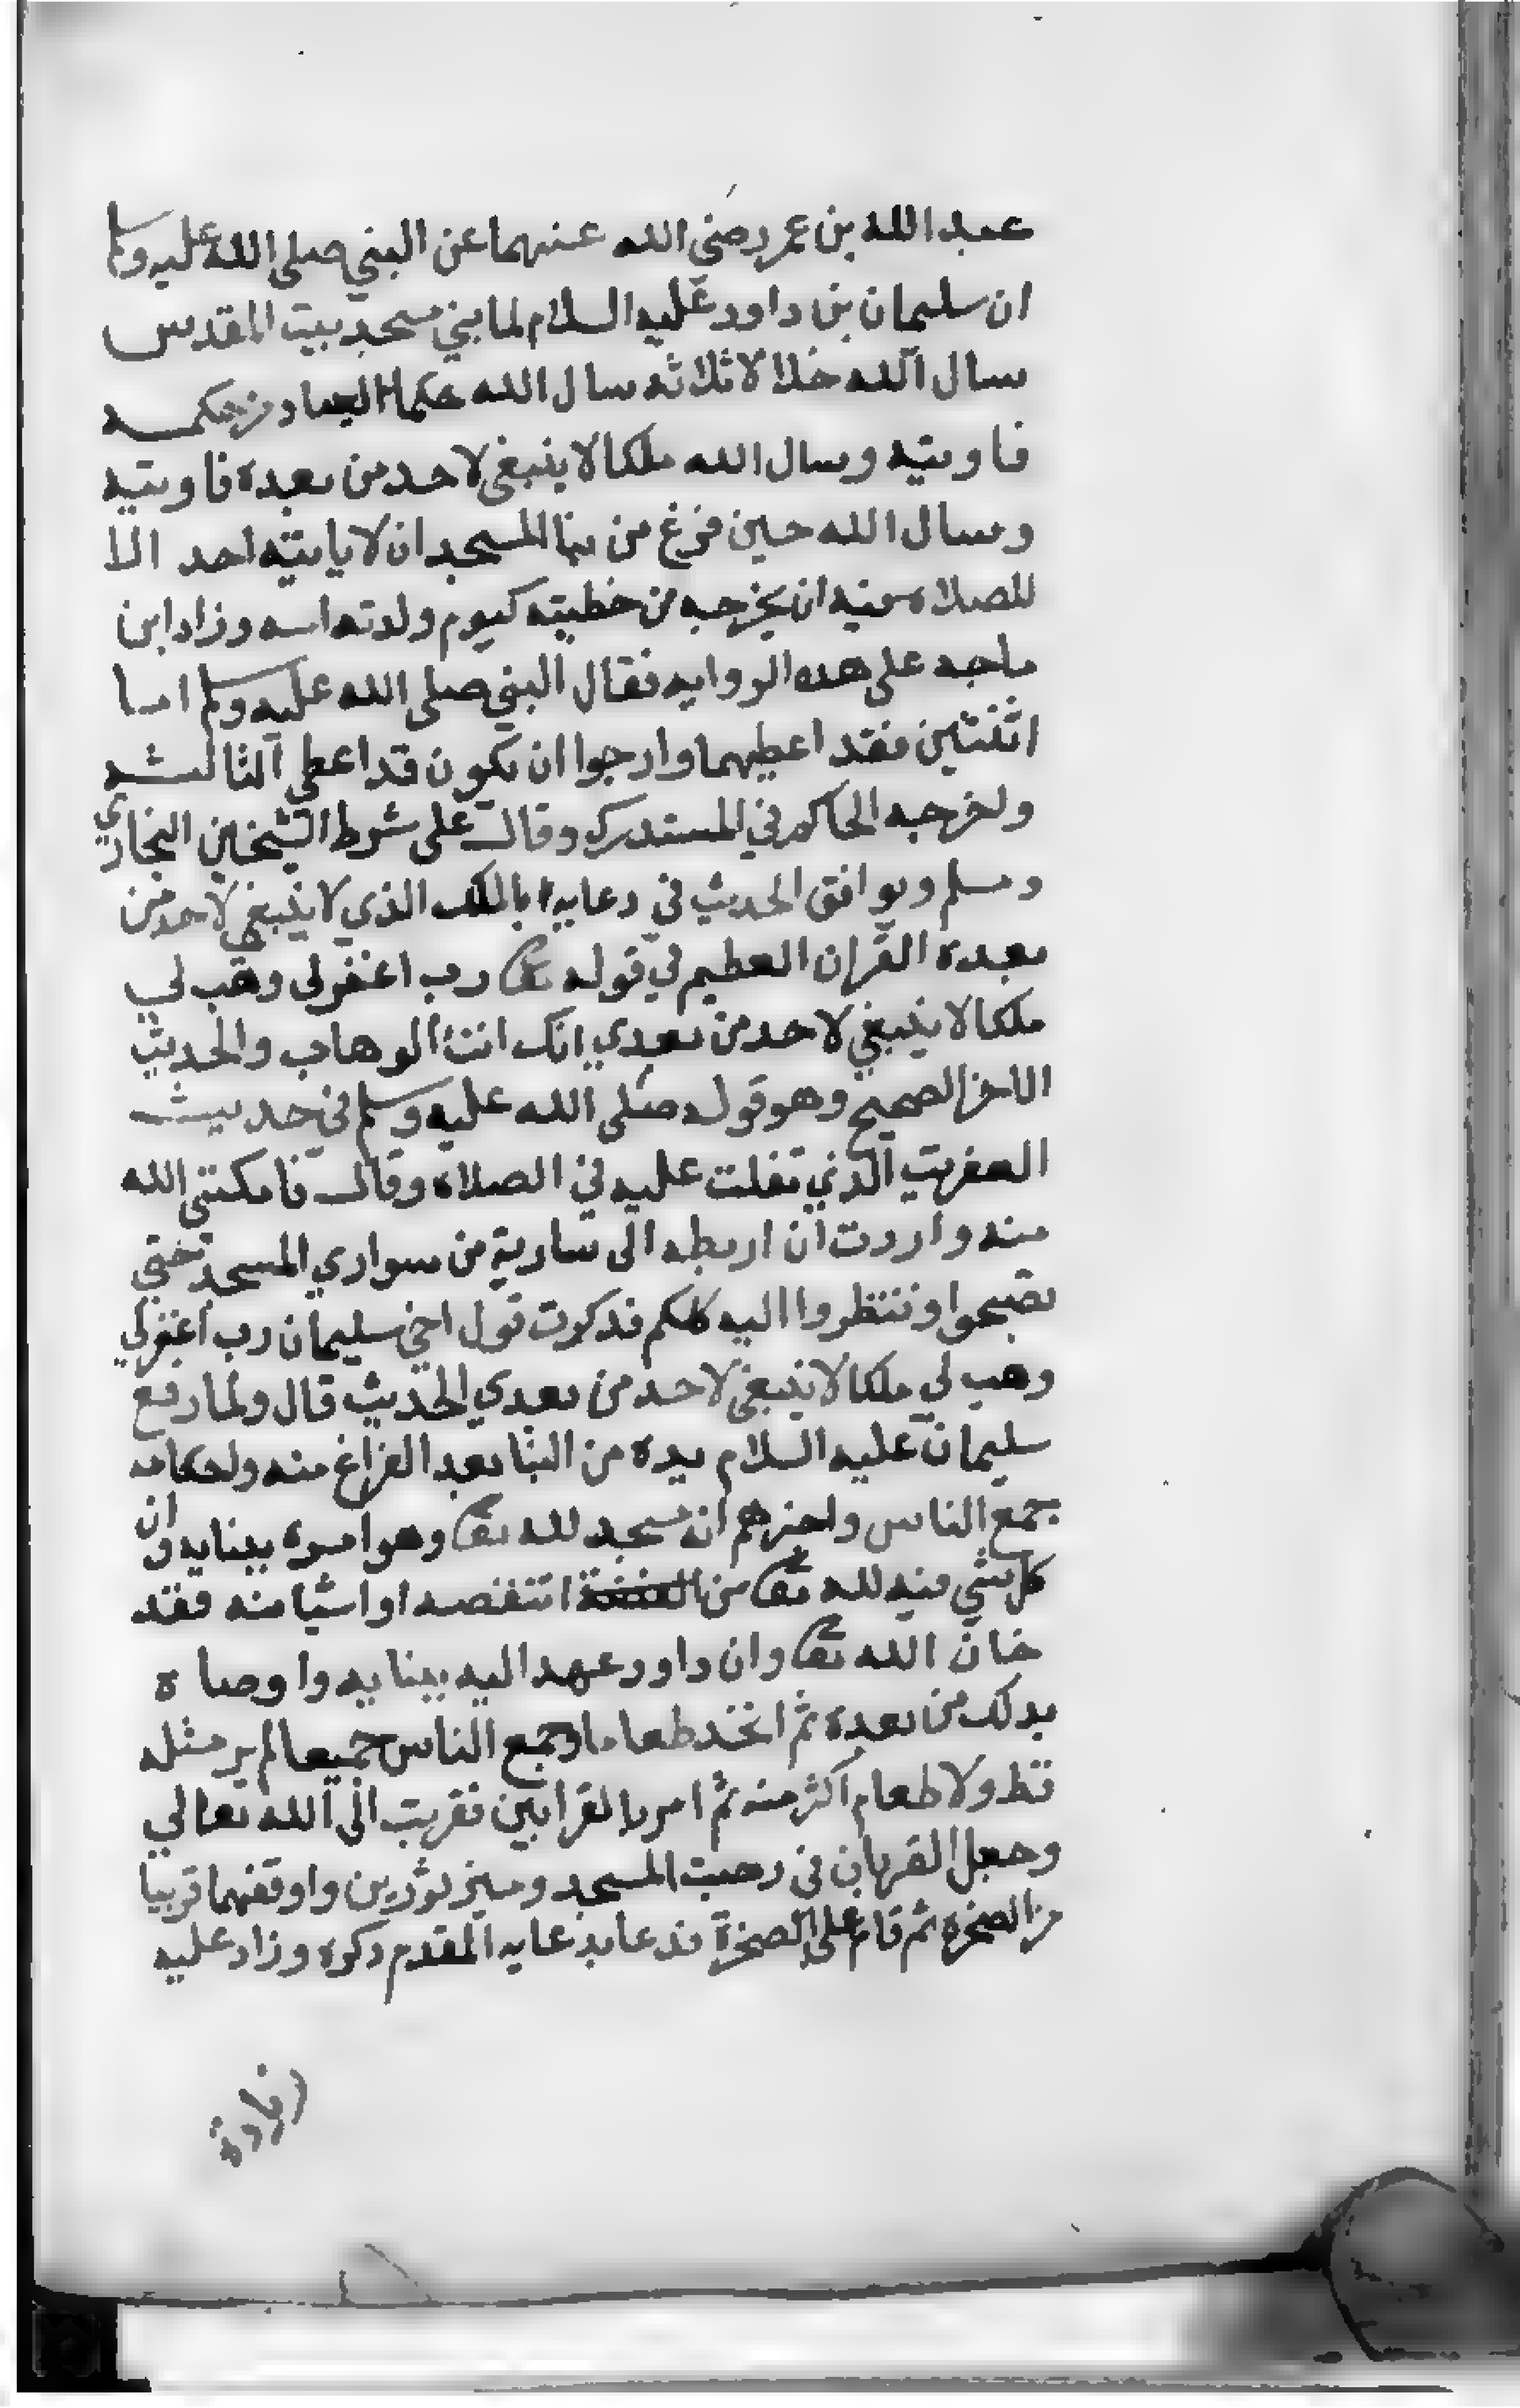 عبد الله بن عمر رضي الله عنهما عن النبي صلى الله عليه وسلم
ان سليمان بن داود عليه السلام لما بني مسجد بيت المقدس
سال الله خلالا ثلاثه سال الله حكما يصادف حكمه
فاوتيه وسال الله ملكا لا ينبغي لاحد من بعده فاوتيه
وسال الله حين فرغ من بنا المسجد ان لا ياتيه احد الا
للصلاه فيه ان يخرجه من خطيته كيوم ولدته امه وزاد ابن
ماجه على هده الروايه فقال النبي صلى الله عليه وسلم اما
اثنتين فقد اعطيهما وارجوا ان يكون قد اعطي الثالثه
واخرجه الحاكم في المستدرك وقال على شرط الشيخين البخاري
ومسلم ويوافق الحديث في دعايه بالملك الذي لا ينبغي لاحد من
بعده القران العظيم في قوله تعا رب اغفر لي وهب لي
ملكا لا ينبغي لاحد من بعدي انك انت الوهاب والحديث
الاخر الصحيح وهو قوله صلى الله عليه وسلم في حديث
العفريت الذي تفلت عليه في الصلاه وقال فامكنني الله
منه واردت ان اربطه الى سارية من سواري المسجد حتي
تصبحوا وتنظروا اليه كلكم فدكرت قول اخي سليمان رب اغفر لي
وهب لي ملكا لا ينبغي لاحد من بعدي الحديث قال ولما رفع
سليمان عليه السلام يده من البنا بعد الفراغ منه واحكامه
جمع الناس واخبرهم انه مسجد لله تعا وهو امره ببنايه وان
كل شي فيه لله تعا من انتقصه او اشيا منه فقد
خان الله تعا وان داود عهد اليه ببنايه واوصاه
بدلك من بعده ثم اتخد طعاما وجمع الناس جميعا لم ير مثله
قط ولا طعام اكثر منه ثم امر بالقرابين فقربت الى الله تعالي
وجعل القربان في رحبت المسجد وميز ثورين واوقفهما قريبا
من الصخره ثم قام على الصخرة فدعا بدعايه المقدم دكره وزاد عليه
زيادة